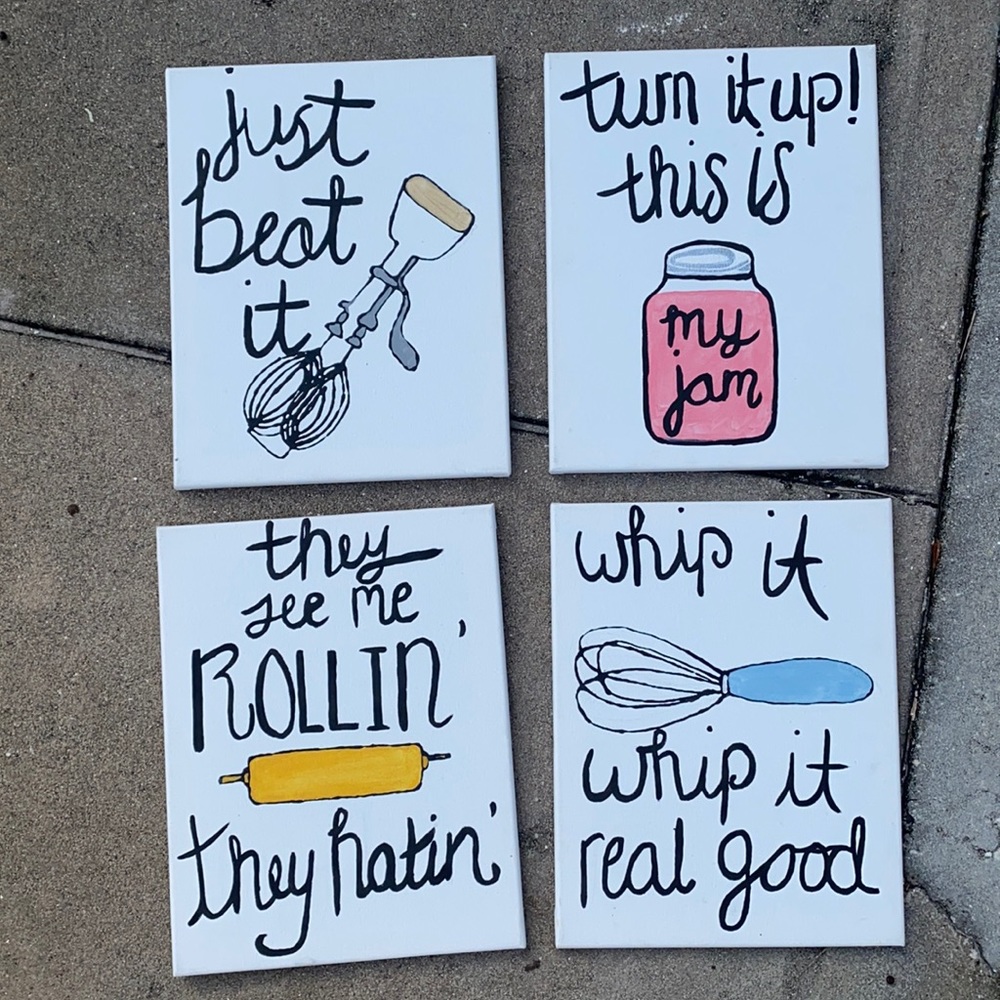 just
beat
it
turn it up!
this is
my
jam
they
see me
ROLLIN'
they hatin'
whip it
whip it
real good